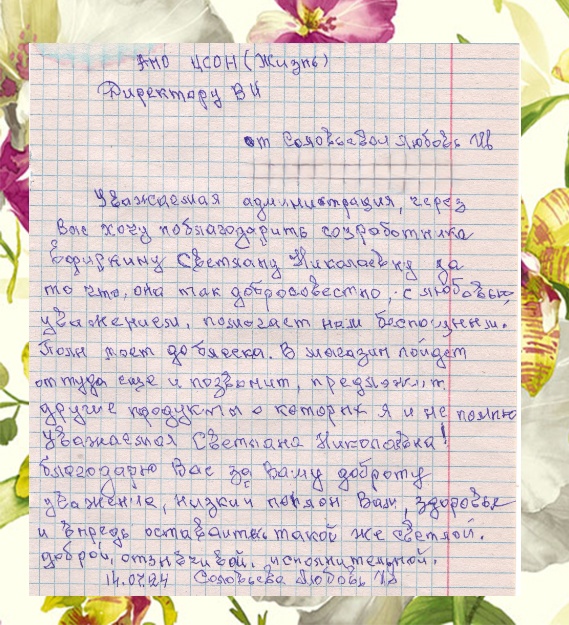 АНО ЦСОН (Жизнь)
Директору ВИ
от Соловьевой Любовь Ив
Уважаемая администрация, через
Вас хочу поблагодарить соцработника
Светлану Николаевну за
то что, она так добросовестно, с любовью,
уважением, помогает нам беспомощным.
Полы моет до блеска. В магазин пойдет
оттуда еще и позвонит, предложит
другие продукты о которых я и не помню
Уважаемая Светлана Николаевна!
благодарю Вас за Вашу доброту
уважение, низкий поклон Вам, здоровья
и впредь оставаться такой же светлой.
доброй, отзывчивой, исполнительной.
14.07.24 Соловьева Любовь Ив